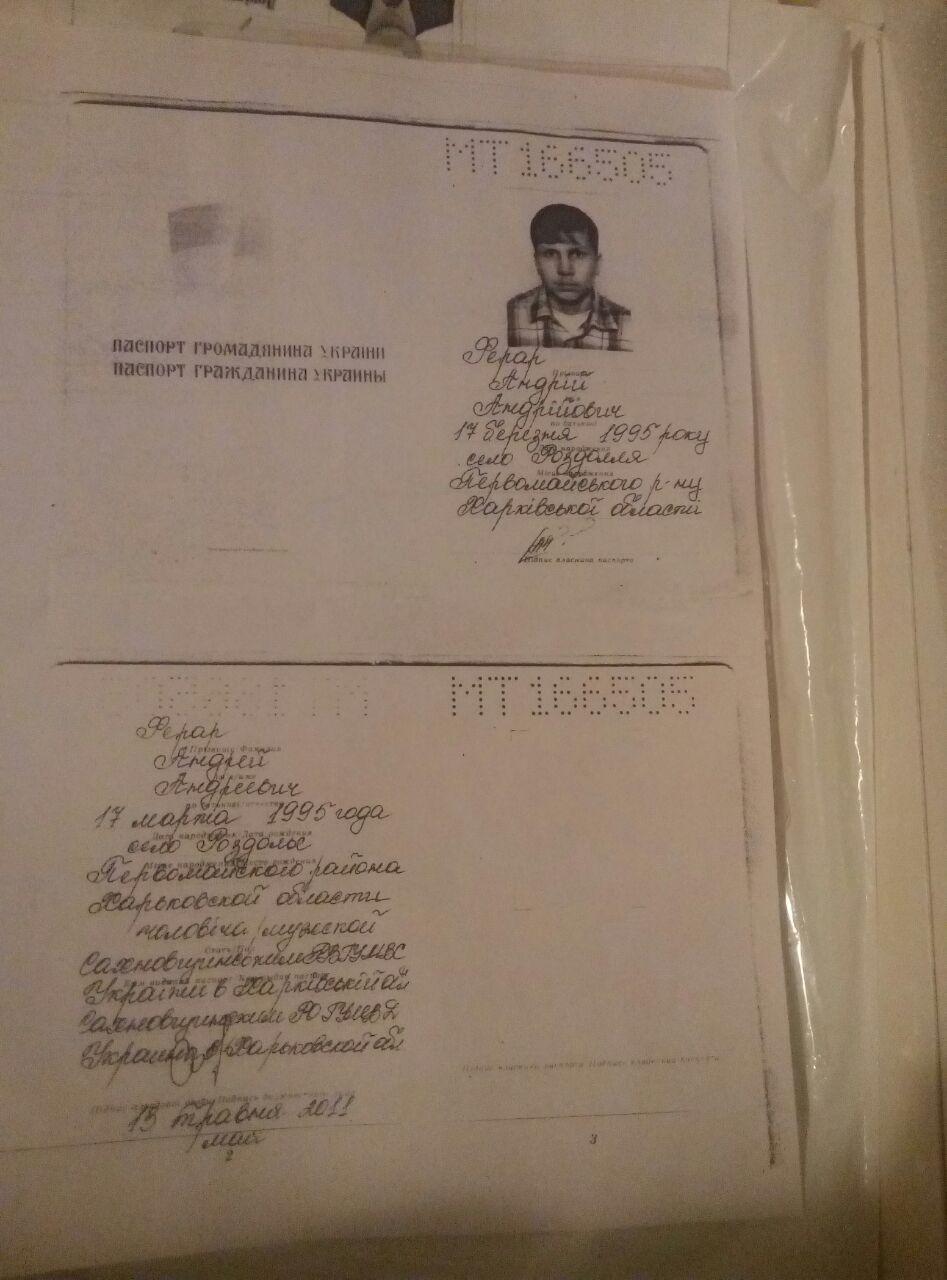 МТ166505
ПАСПОРТ ГРОМАДЯНИНА УКРАЇНИ
ПАСПОРТ ГРАЖДАНИНА УКРАИНЫ
Ферар
Андрій
Андрійович
17 березня 1995 року
село Роздолля
Первомайського р-ну
Харківської області
Підпис власника паспорта
МТ166505
Ферар
Прізвище Фамилия
Андрей
Андреевич
17 марта 1995 года
село Роздолье
Первомайского района
Харьковской области
чоловіча/мужской
Сахновщинським РВГУМВС
України в Харківській обл
Сахновщинским РОГУМВД
Украины в Харьковской обл
15 травня 2011
мая
2
Підпис власника паспорта Подпись владельца паспорта
3